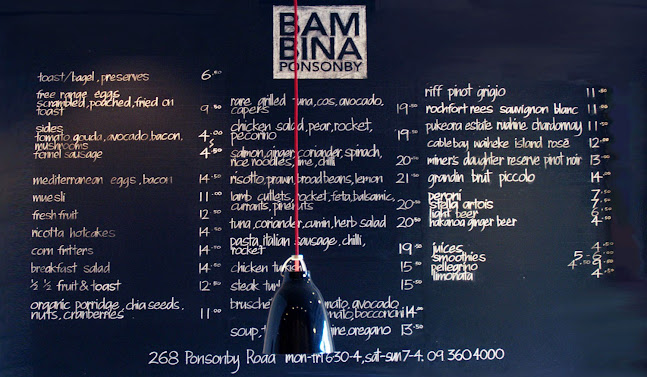 BAM
BINA
PONSONBY
toast/bagel, preserves 6.50
free range eggs
scrambled, poached, fried on
toast 9.50
sides
tomato, gouda, avocado, bacon, 4.00
mushrooms
fennel sausage 4.50
mediterranean eggs, bacon 14.50
muesli 11.00
fresh fruit 12.50
ricotta hotcakes 14.50
corn fritters 14.50
breakfast salad 14.50
½ ½ fruit & toast 12.50
organic porridge, chia seeds,
nuts, cranberries 11.00
rare grilled tuna, cos, avocado,
capers 19.50
chicken salad, pear, rocket,
pecorino 19.50
salmon, ginger, coriander, spinach,
rice noodles, lime, chilli 20.00
risotto, prawn, broad beans, lemon 21.00
lamb cutlets, rocket, feta, balsamic,
currants, pinenuts 20.50
tuna, coriander, cumin, herb salad 20.50
pasta, italian sausage, chilli,
rocket 19.50
chicken 15.50
steak 15.50
avocado
bocconcini 14.00
soup, oregano 13.50
riff pinot grigio 11.50
rochfort rees sauvignon blanc 11.50
pukeora estate ruahine chardonnay 11.50
cable bay waiheke island rose 12.00
miner's daughter reserve pinot noir 13.00
grandin brut piccolo 14.00
peroni 7.50
stella artois 7.50
light beer 6
hakanoa ginger beer 4.50
juices 4.50
smoothies 5-8
pellegrino 4.50
limonata 4.50
268 Ponsonby Road mon-fri 6.30-4, sat-sun 7-4. 09 360 4000